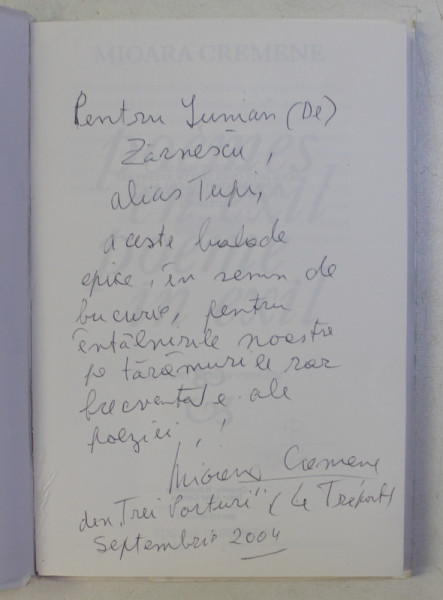 MIOARA CREMENE
Pentru Iunian (De)
Zărnescu,
alias Tupi,
aceste balade
epice, în semn de
bucurie, pentru
întâlnirile noastre
pe tărâmurile rar
frecventate ale
poeziei,
Mioara Cremene
din „Trei Porturi" (Le Tréport)
Septembrie 2004
poèmes
exil
poeme
în exil